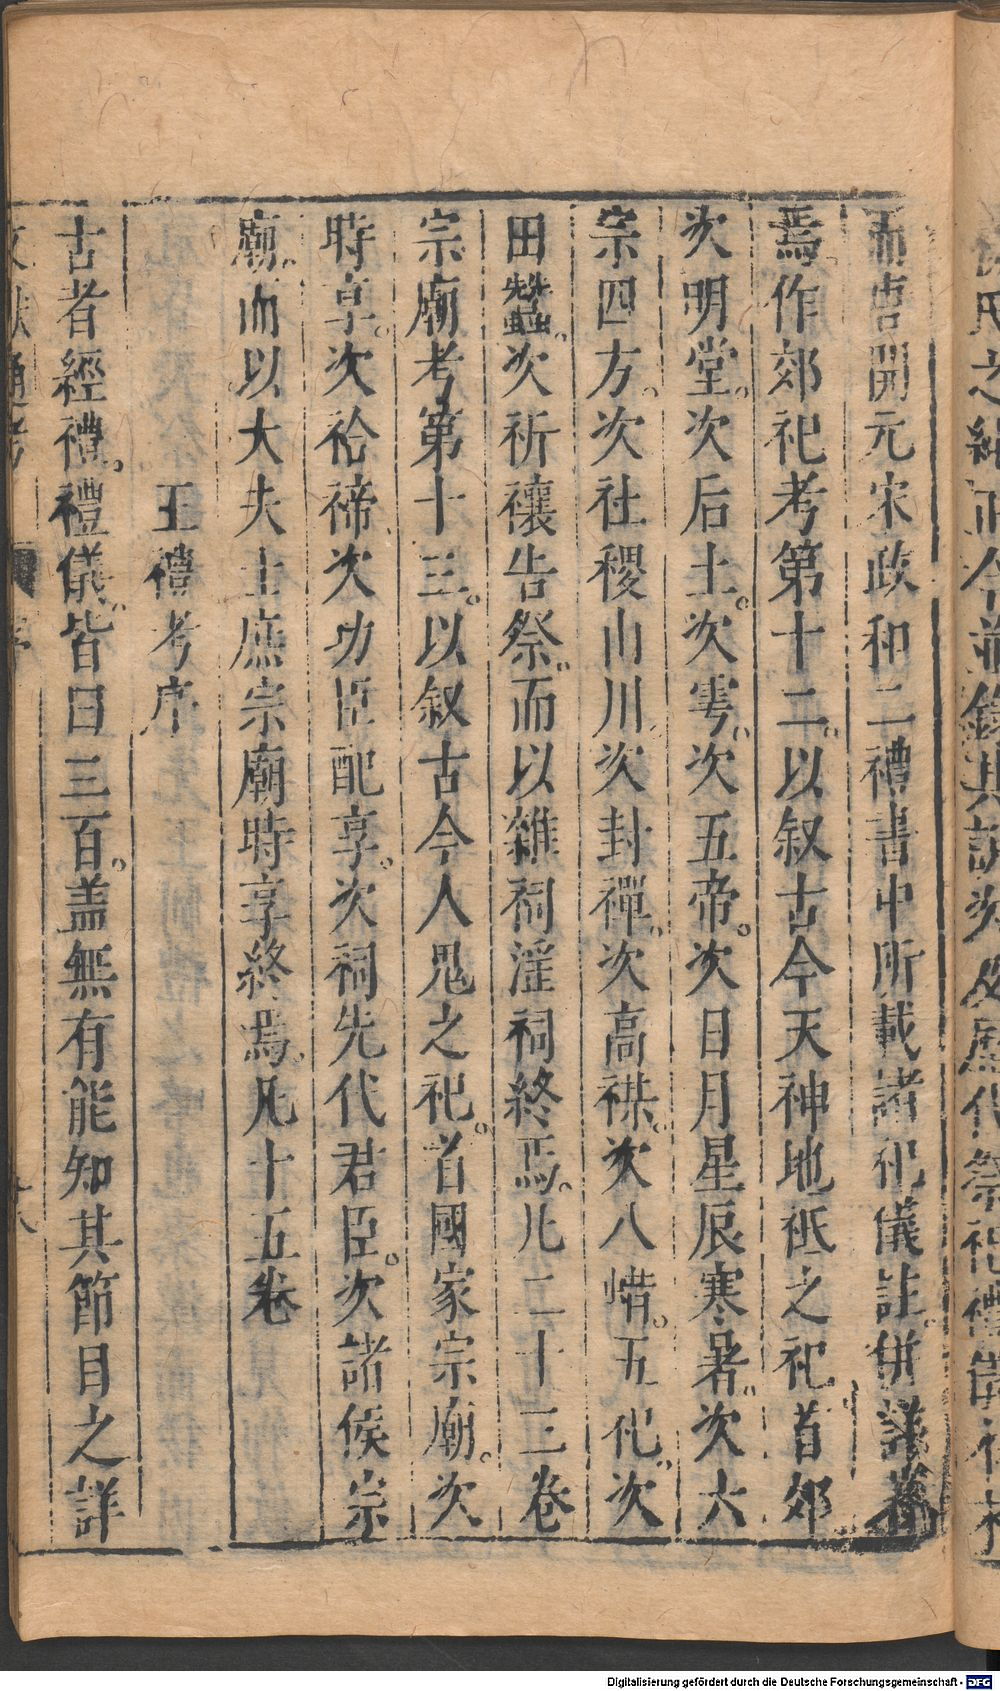 而唐開元宋政和二禮書中所載諸祀儀註併詳著
焉。作郊祀考第十二。以叙古今天神地祗之祀。首郊
次明堂。次后土。次雩。次五帝。次日月星辰寒暑。次六
宗四方。次社稷山川。次封禪。次高禖。次八蜡。五祀。次
田蠶先蠶。次祈禳告祭。而以雜祠淫祠終焉。凡二十三卷
宗廟考第十三。以叙古今人鬼之祀。首國家宗廟。次
時享。次祫禘。次功臣配享。次祠先代君臣。次諸侯宗
廟。而以大夫士庶宗廟時享終焉。凡十五卷
王禮考序
古者經禮。禮儀。皆曰三百。盖無有能知其節目之詳
Digitalisierung gefördert durch die Deutsche Forschungsgemeinschaft - DFG